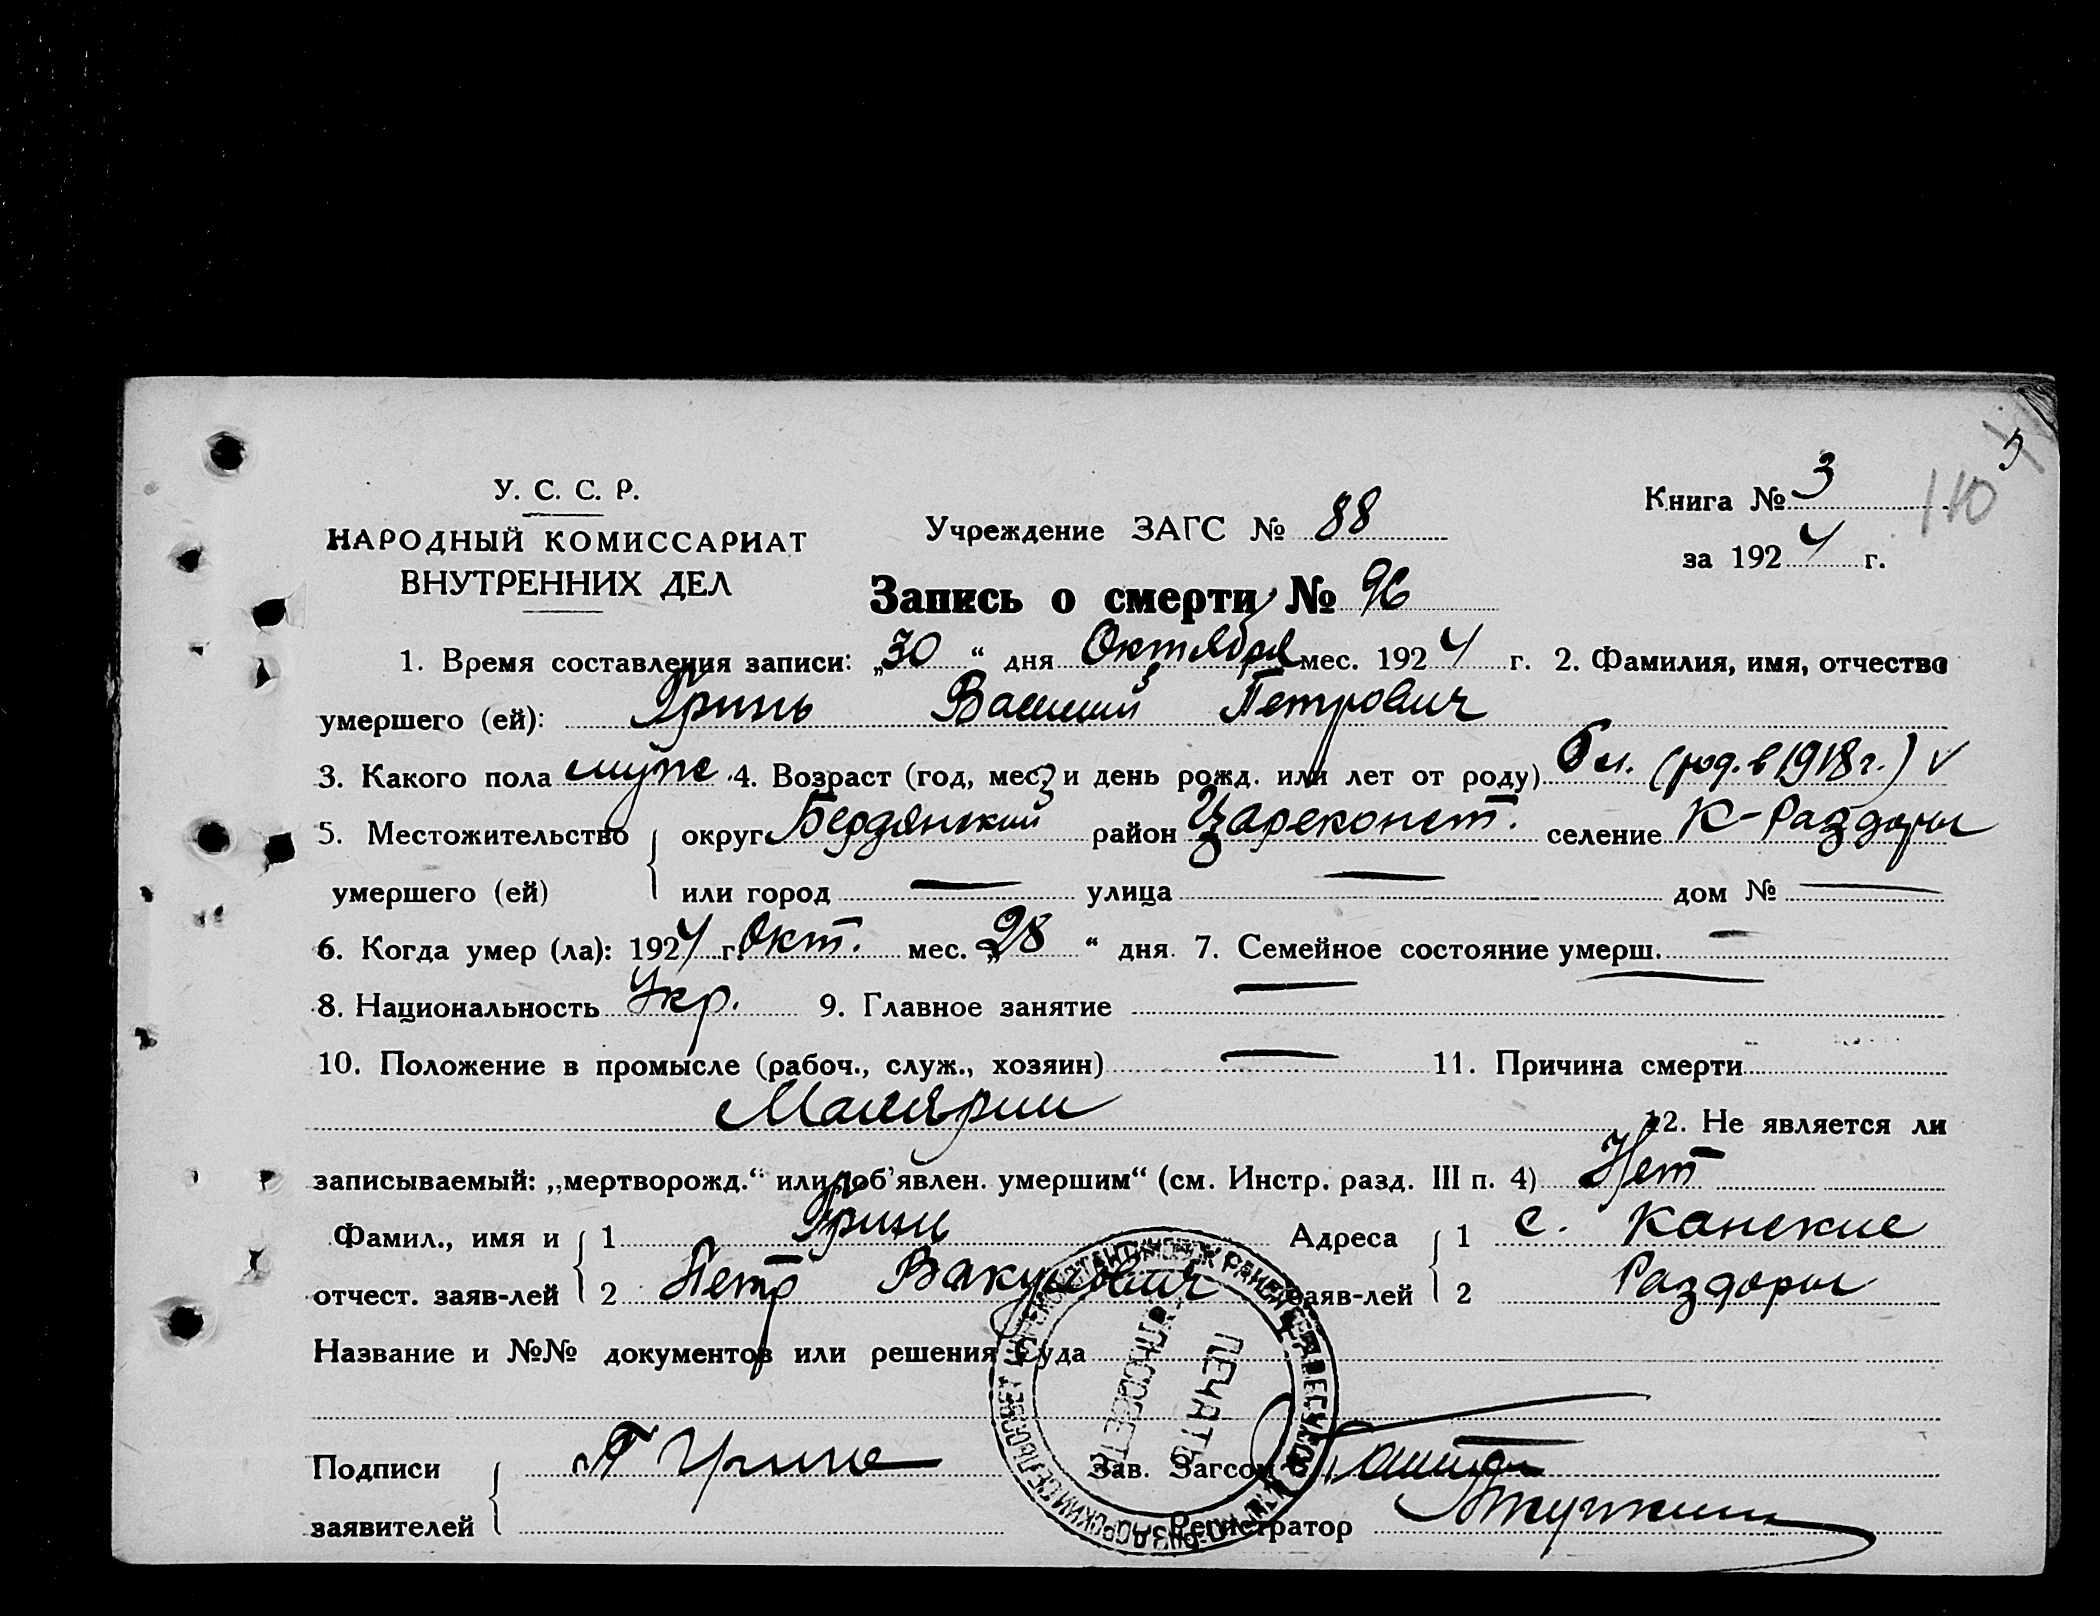 110
У. С. С. Р.
НАРОДНЫЙ КОМИССАРИАТ
ВНУТРЕННИХ ДЕЛ
Учреждение ЗАГС № 88
Книга № 3
за 1924 г.
Запись о смерти № 96
1. Время составления записи: „30“ дня Октября мес. 1924 г. 2. Фамилия, имя, отчество
умершего (ей): Гринь Василий Петрович
3. Какого пола муж. 4. Возраст (год, мес. и день рожд. или лет от роду) 6 л. (род. в 1918 г.) v
5. Местожительство округ Бердянский район Цареконст. селение К-Раздоры
умершего (ей) или город — улица — дом № —
6. Когда умер (ла): 1924 г. Окт. мес. „28“ дня. 7. Семейное состояние умерш. —
8. Национальность Укр. 9. Главное занятие —
10. Положение в промысле (рабоч., служ., хозяин) — 11. Причина смерти
Малярии 12. Не является ли
записываемый: „мертворожд.“ или „об'явлен. умершим“ (см. Инстр. разд. III п. 4) Нет
Фамил., имя и 1 Гринь Адреса 1 с. Канские
отчест. заяв-лей 2 Петр Вакулович заяв-лей 2 Раздоры
Название и №№ документов или решения Суда
ПЕЧАТЬ
Подписи П Гринь Зав. Загсом
заявителей Регистратор